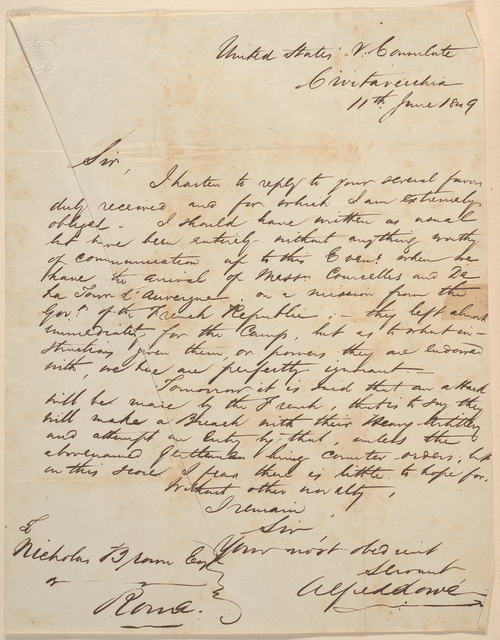 United States' V. Consulate
Civitavecchia
11th June 1849
Sir,
I hasten to reply to your several favors
duly received and for which I am extremely
obliged. I should have written as usual
but have been entirely without anything worthy
of communication up to this Even.g when we
have the arrival of Messrs Courcelles and De
La Tour d'Auvergne on a mission from the
Govt. of the French Republic; - they left almost
immediately for the Camp, but as to what in-
structions given them, or powers they are endowed
with, we here are perfectly ignorant. -
Tomorrow it is said that an attack
will be made by the French, that is to say they
will make a Breach with their Heavy Artillery
and attempt an Entry by that, unless the
abovenamed Gentlemen bring counter orders, but
on this score I fear there is little to hope for.
Without other novelty,
I remain
Sir
Your most obedient
Servant
To
Nicholas Brown Esqr
Rome.